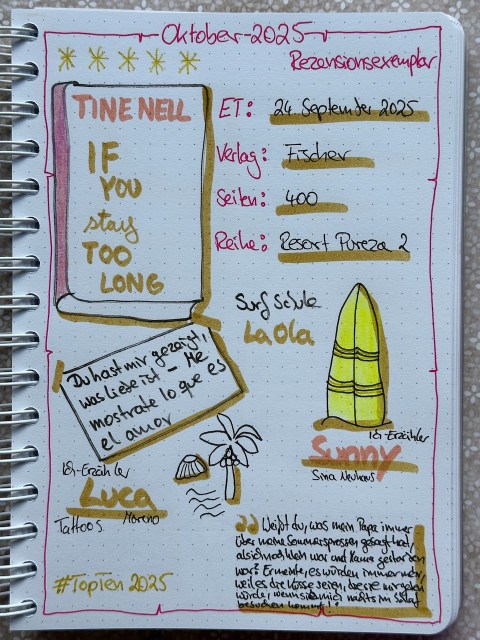 Oktober-2025
Rezensionsexemplar
TINE NELL
IF
YOU
stay
TOO
LONG
ET: 24. September 2025
Verlag: Fischer
Seiten: 400
Reihe: Resort Pureza 2
Surf Schule
La Ola
Du hast mir gezeigt,
was Liebe ist – Me
mostraste lo que es
el amor
Ich-Erzähler
Sunny
Sina Neuhaus
Ich-Erzähler
Luca
Moreno
Tattoos
Weißt du, was mein Papa immer
über meine Sommersprossen gesagt hat,
als ich noch klein war und Mama gestorben
war? Er meinte, es würden immer mehr,
weil es die Küsse seien, die sie mir geben
würde, wenn sie mich nachts im Schlaf
besuchen kommt!
#TopTen 2025